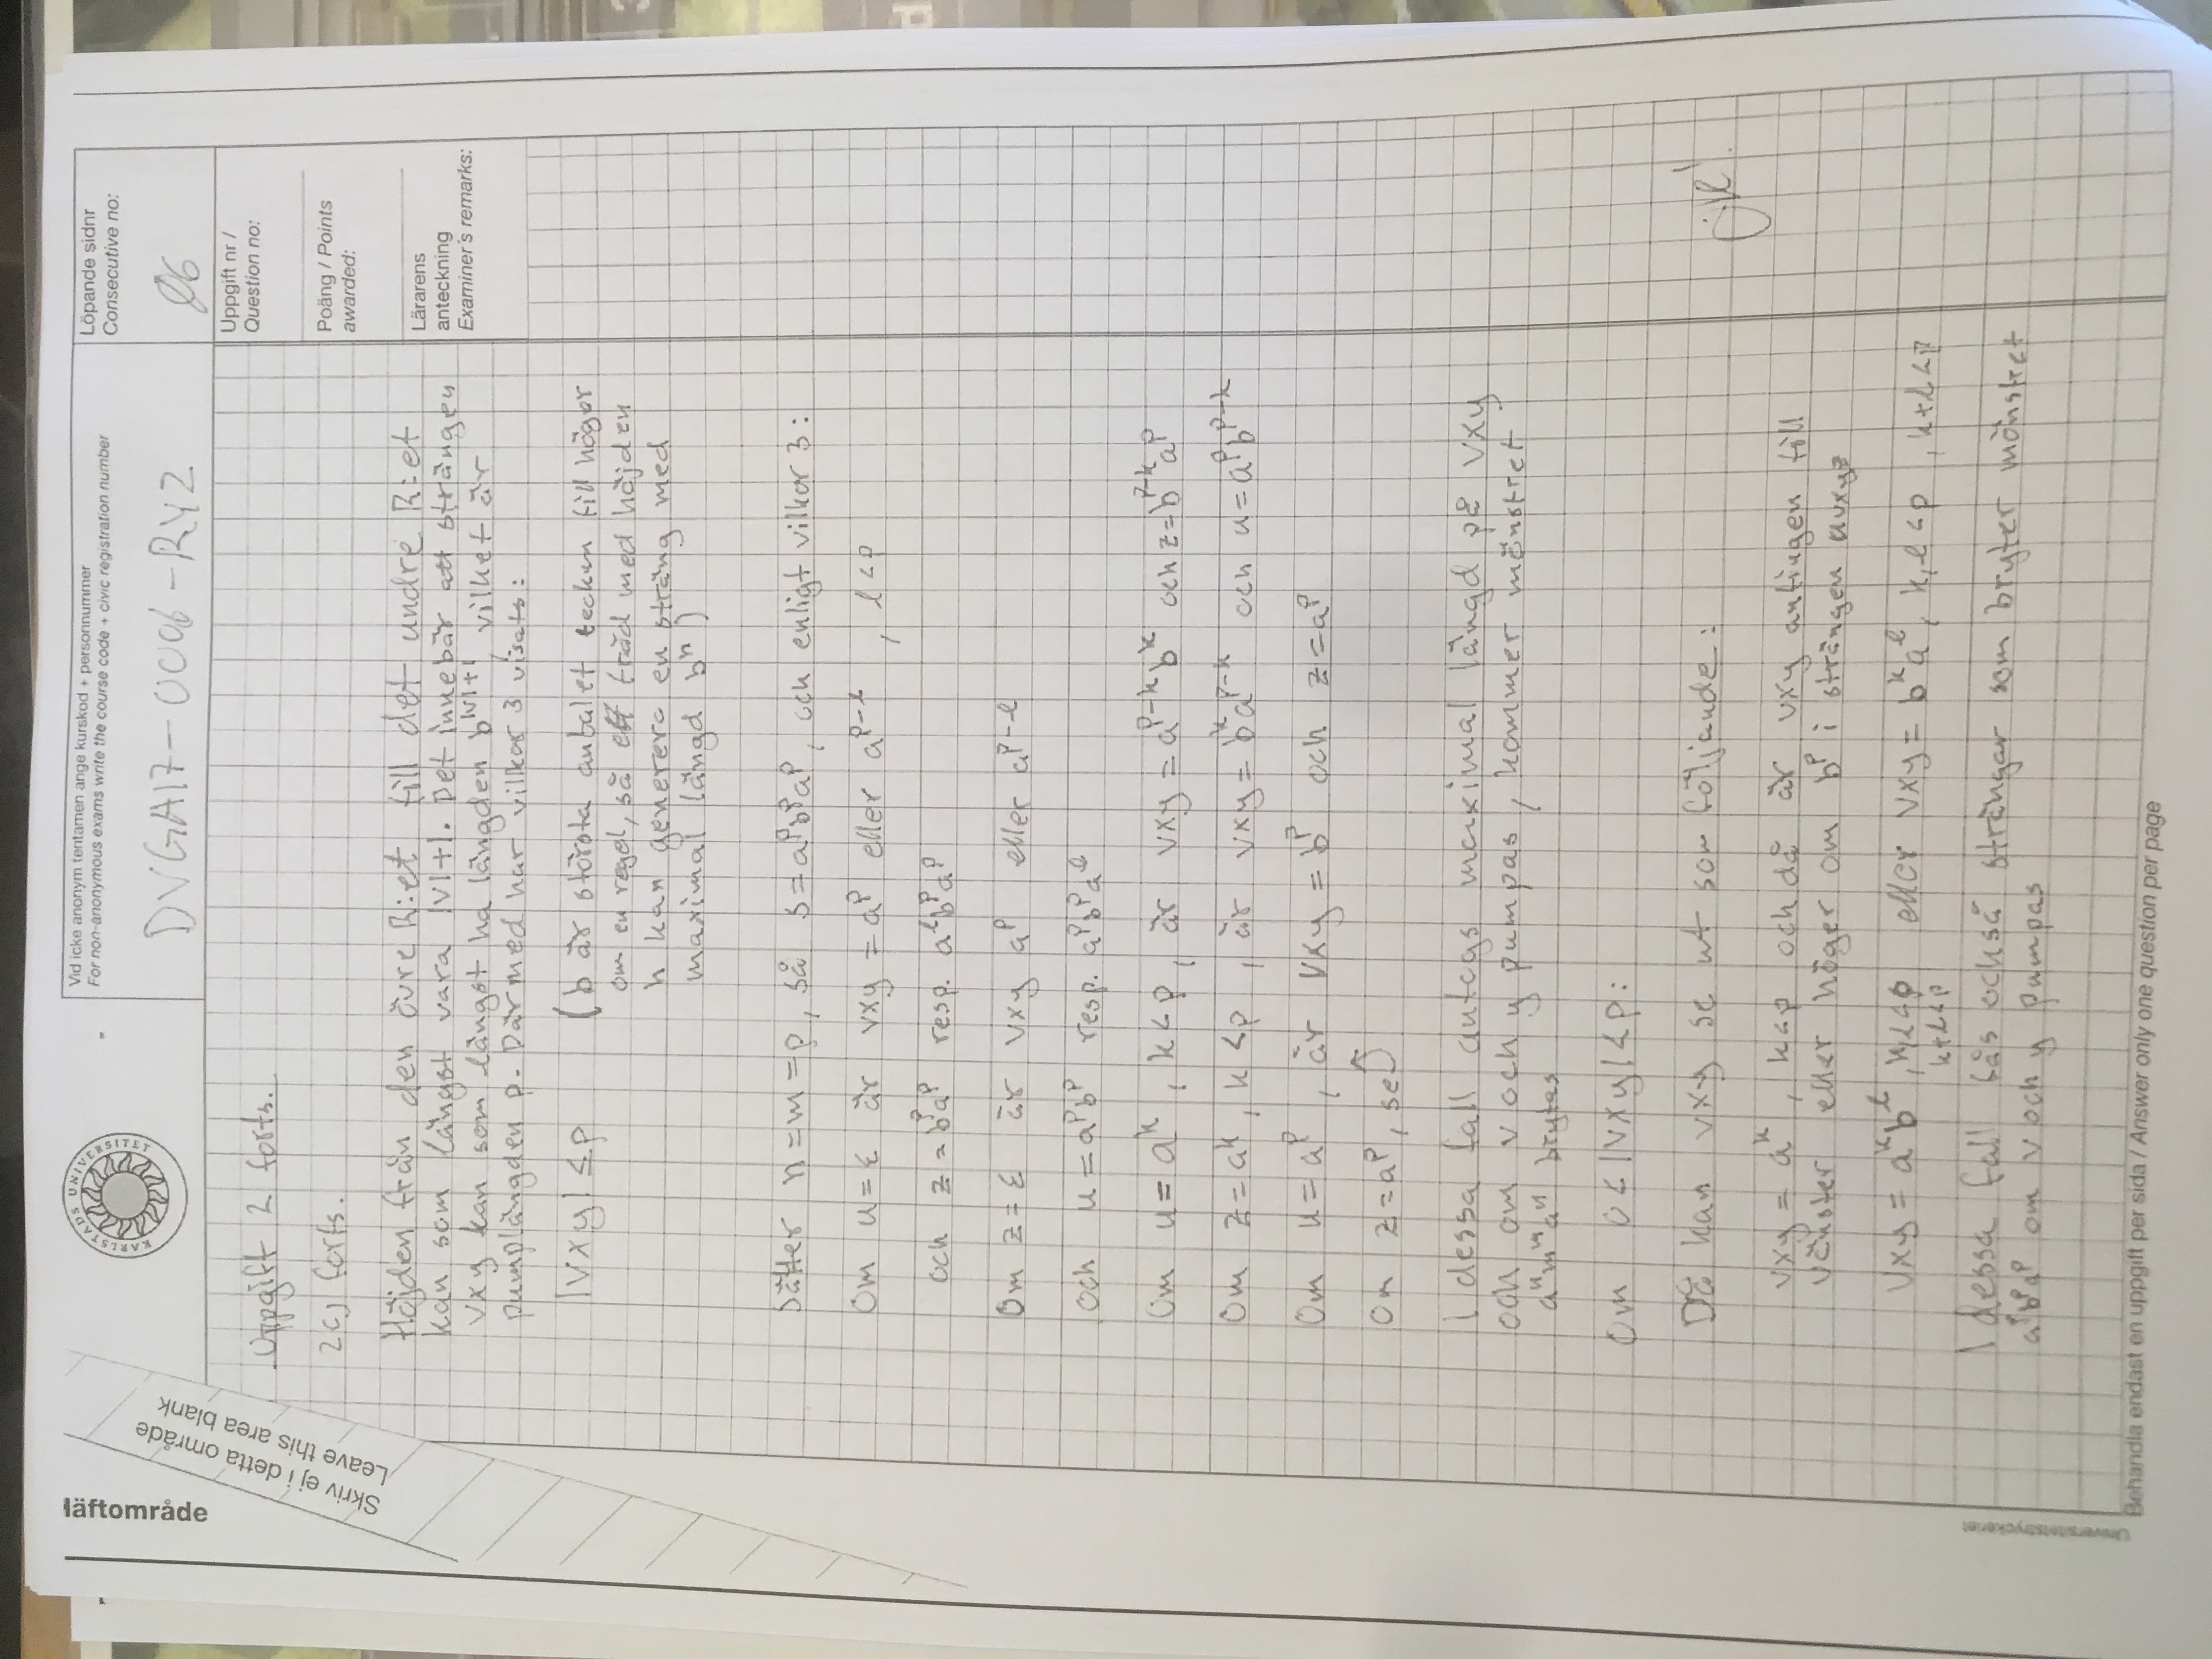 läftområde
Skriv ej i detta område
Leave this area blank
KARLSTADS UNIVERSITET
Vid icke anonym tentamen ange kurskod + personnummer
For non-anonymous exams write the course code + civic registration number
DVGA17-0006-RYZ
Löpande sidnr
Consecutive no:
06
Uppgift nr /
Question no:
Poäng / Points
awarded:
Lärarens
anteckning
Examiner's remarks:
Uppgift 2 forts.
2c) forts.
Höjden från den övre R:et till det undre R:et
kan som längst vara |V|+1. Det innebär att strängen
vxy kan som längst ha längden b^|V|+1, vilket är
pumplängden p. Därmed har villkor 3 visats:
|vxy| ≤ p (b är största antalet tecken till höger
om en regel, så ett träd med höjden
h kan generera en sträng med
maximal längd b^h)
Sätter n=m=p, så s=a^p b^p a^p, och enligt vilkor 3:
Om u=ε är vxy = a^p eller a^p-l, l<p
och z = b^p a^p resp. a^l b^p a^p
Om z=ε är vxy a^p eller a^p-l
och u = a^p b^p resp. a^p b^p a^l
Om u = a^k, k<p, är vxy = a^p-k b^k och z=b^p-k a^p
Om z=a^k, k<p, är vxy = b^k a^p-k och u=a^p b^p-k
Om u=a^p, är vxy = b^p och z=a^p
Om z=a^p, se⤴
I dessa fall antogs maximal längd på vxy
och om v och y pumpas, kommer mönstret
a^n m^m a^n brytas
Om 0<|vxy|<p:
Då kan vxy se ut som följande:
ok!
vxy = a^k, k<p och då är vxy antingen till
vänster eller höger om b^p i strängen uvxyz
vxy = a^k b^l, k,l<p eller vxy = b^k a^l, k,l<p, k+l<p
k+l<p
I dessa fall fås också strängar som bryter mönstret
a^p b^p a^p om v och y pumpas
Universitetstryckeriet
Behandla endast en uppgift per sida / Answer only one question per page